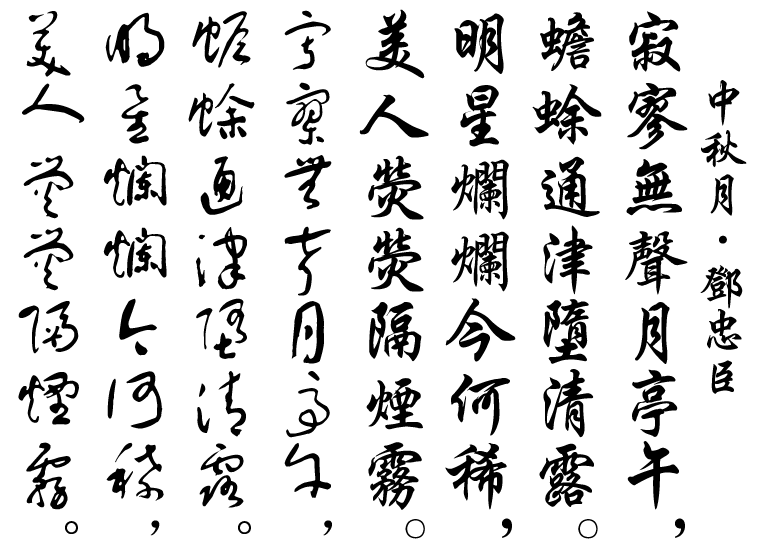 中秋月·鄧忠臣
寂寥無聲月亭午，
蟾蜍通津墮清露。
明星爛爛今何稀，
美人熒熒隔煙霧。
寂寥無聲月亭午，
蟾蜍通津墮清露。
明星爛爛今何稀，
美人熒熒隔煙霧。